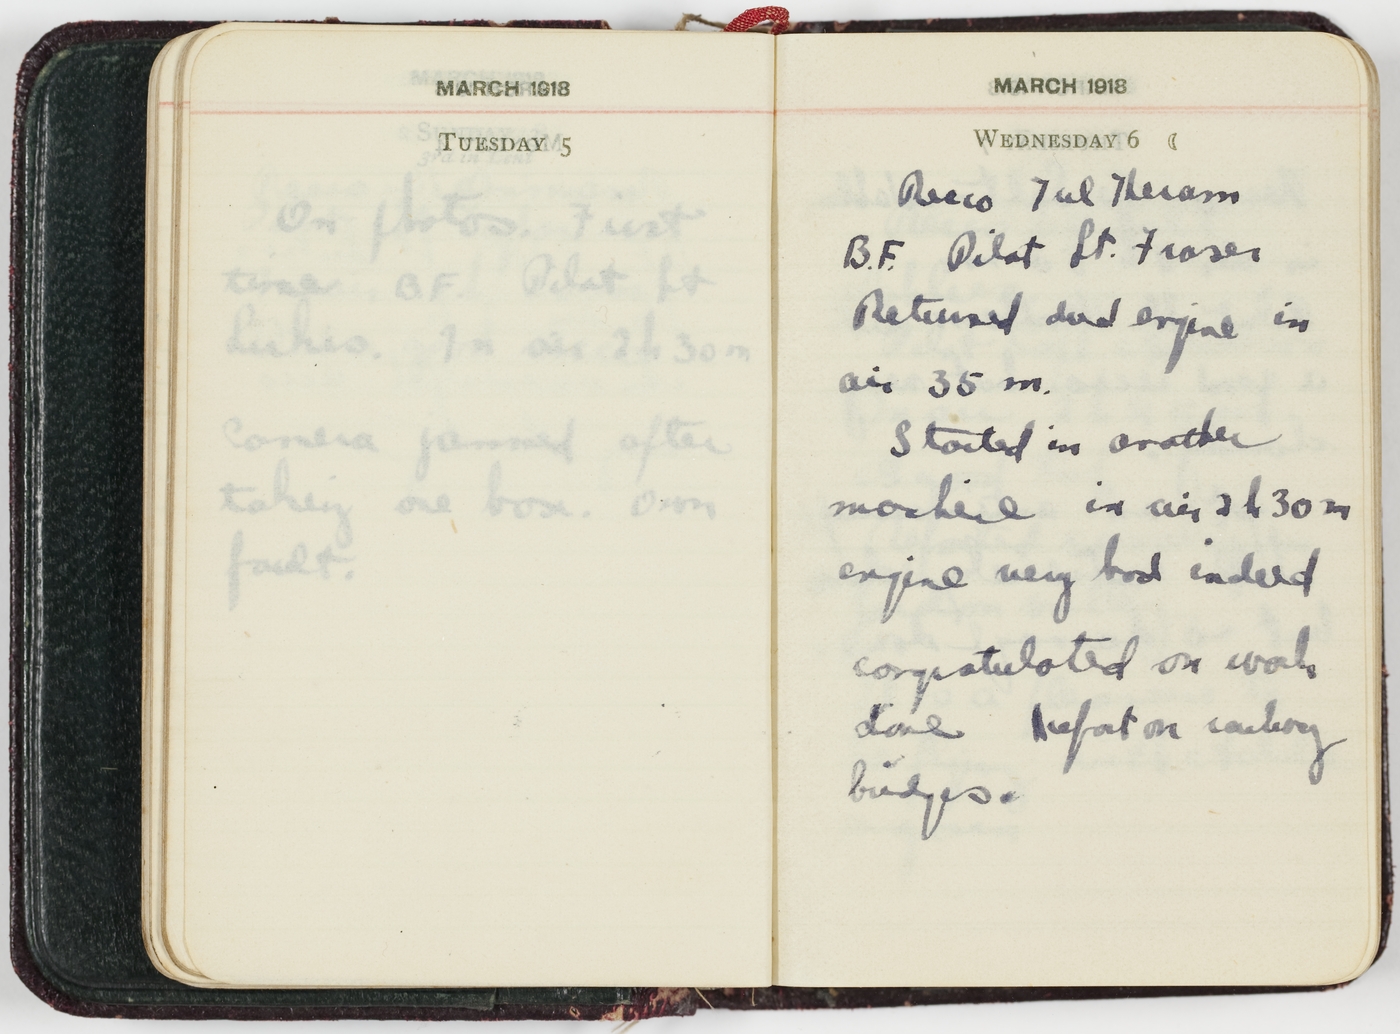 MARCH 1918
TUESDAY 5
On photos. First
time B.F. Pilot Lt
In air 2 h 30 m
Camera jammed after
taking one box. Own
fault.
MARCH 1918
WEDNESDAY 6 ☾
Recco Tul Keram
B.F. Pilot Lt. Fraser
Returned dud engine in
air 35 m.
Started in another
machine in air 2 h 30 m
engine very bad indeed
congratulated on work
done report on railway
bridges.